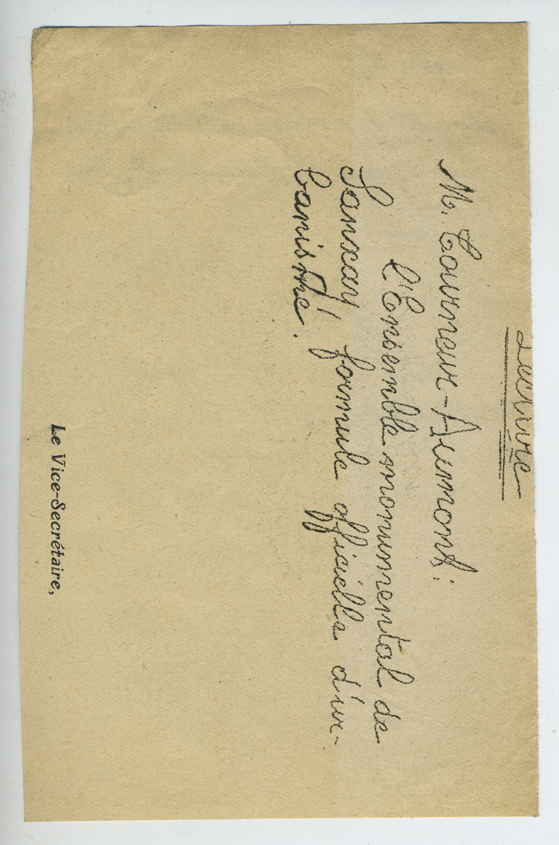 Lecture
M. Tourneur-Aumont :
l'Ensemble monumental de
Sanxay formule officielle d'ur-
banisme.
Le Vice-Secrétaire,